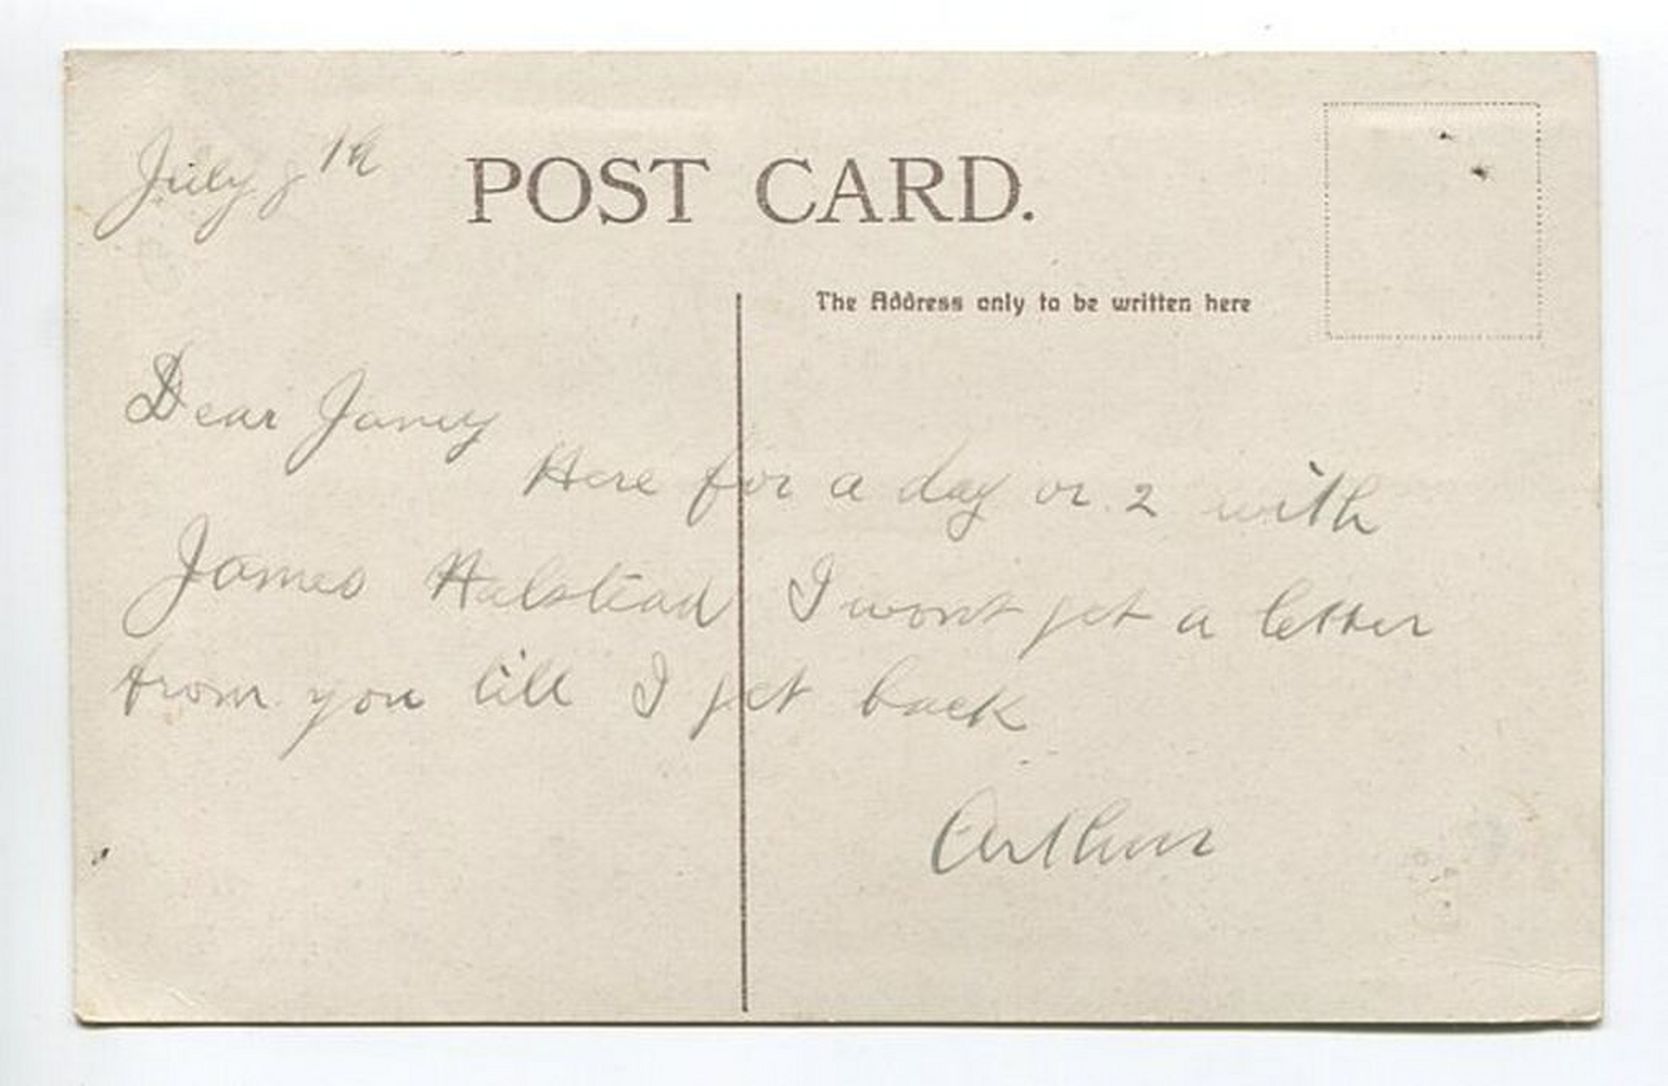 July 8th
POST CARD.
The Address only to be written here
Dear Janey
Here for a day or 2 with
James Halstead I wont get a letter
from you till I get back
Arthur